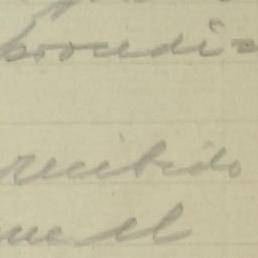 procedi=
recibido
que el